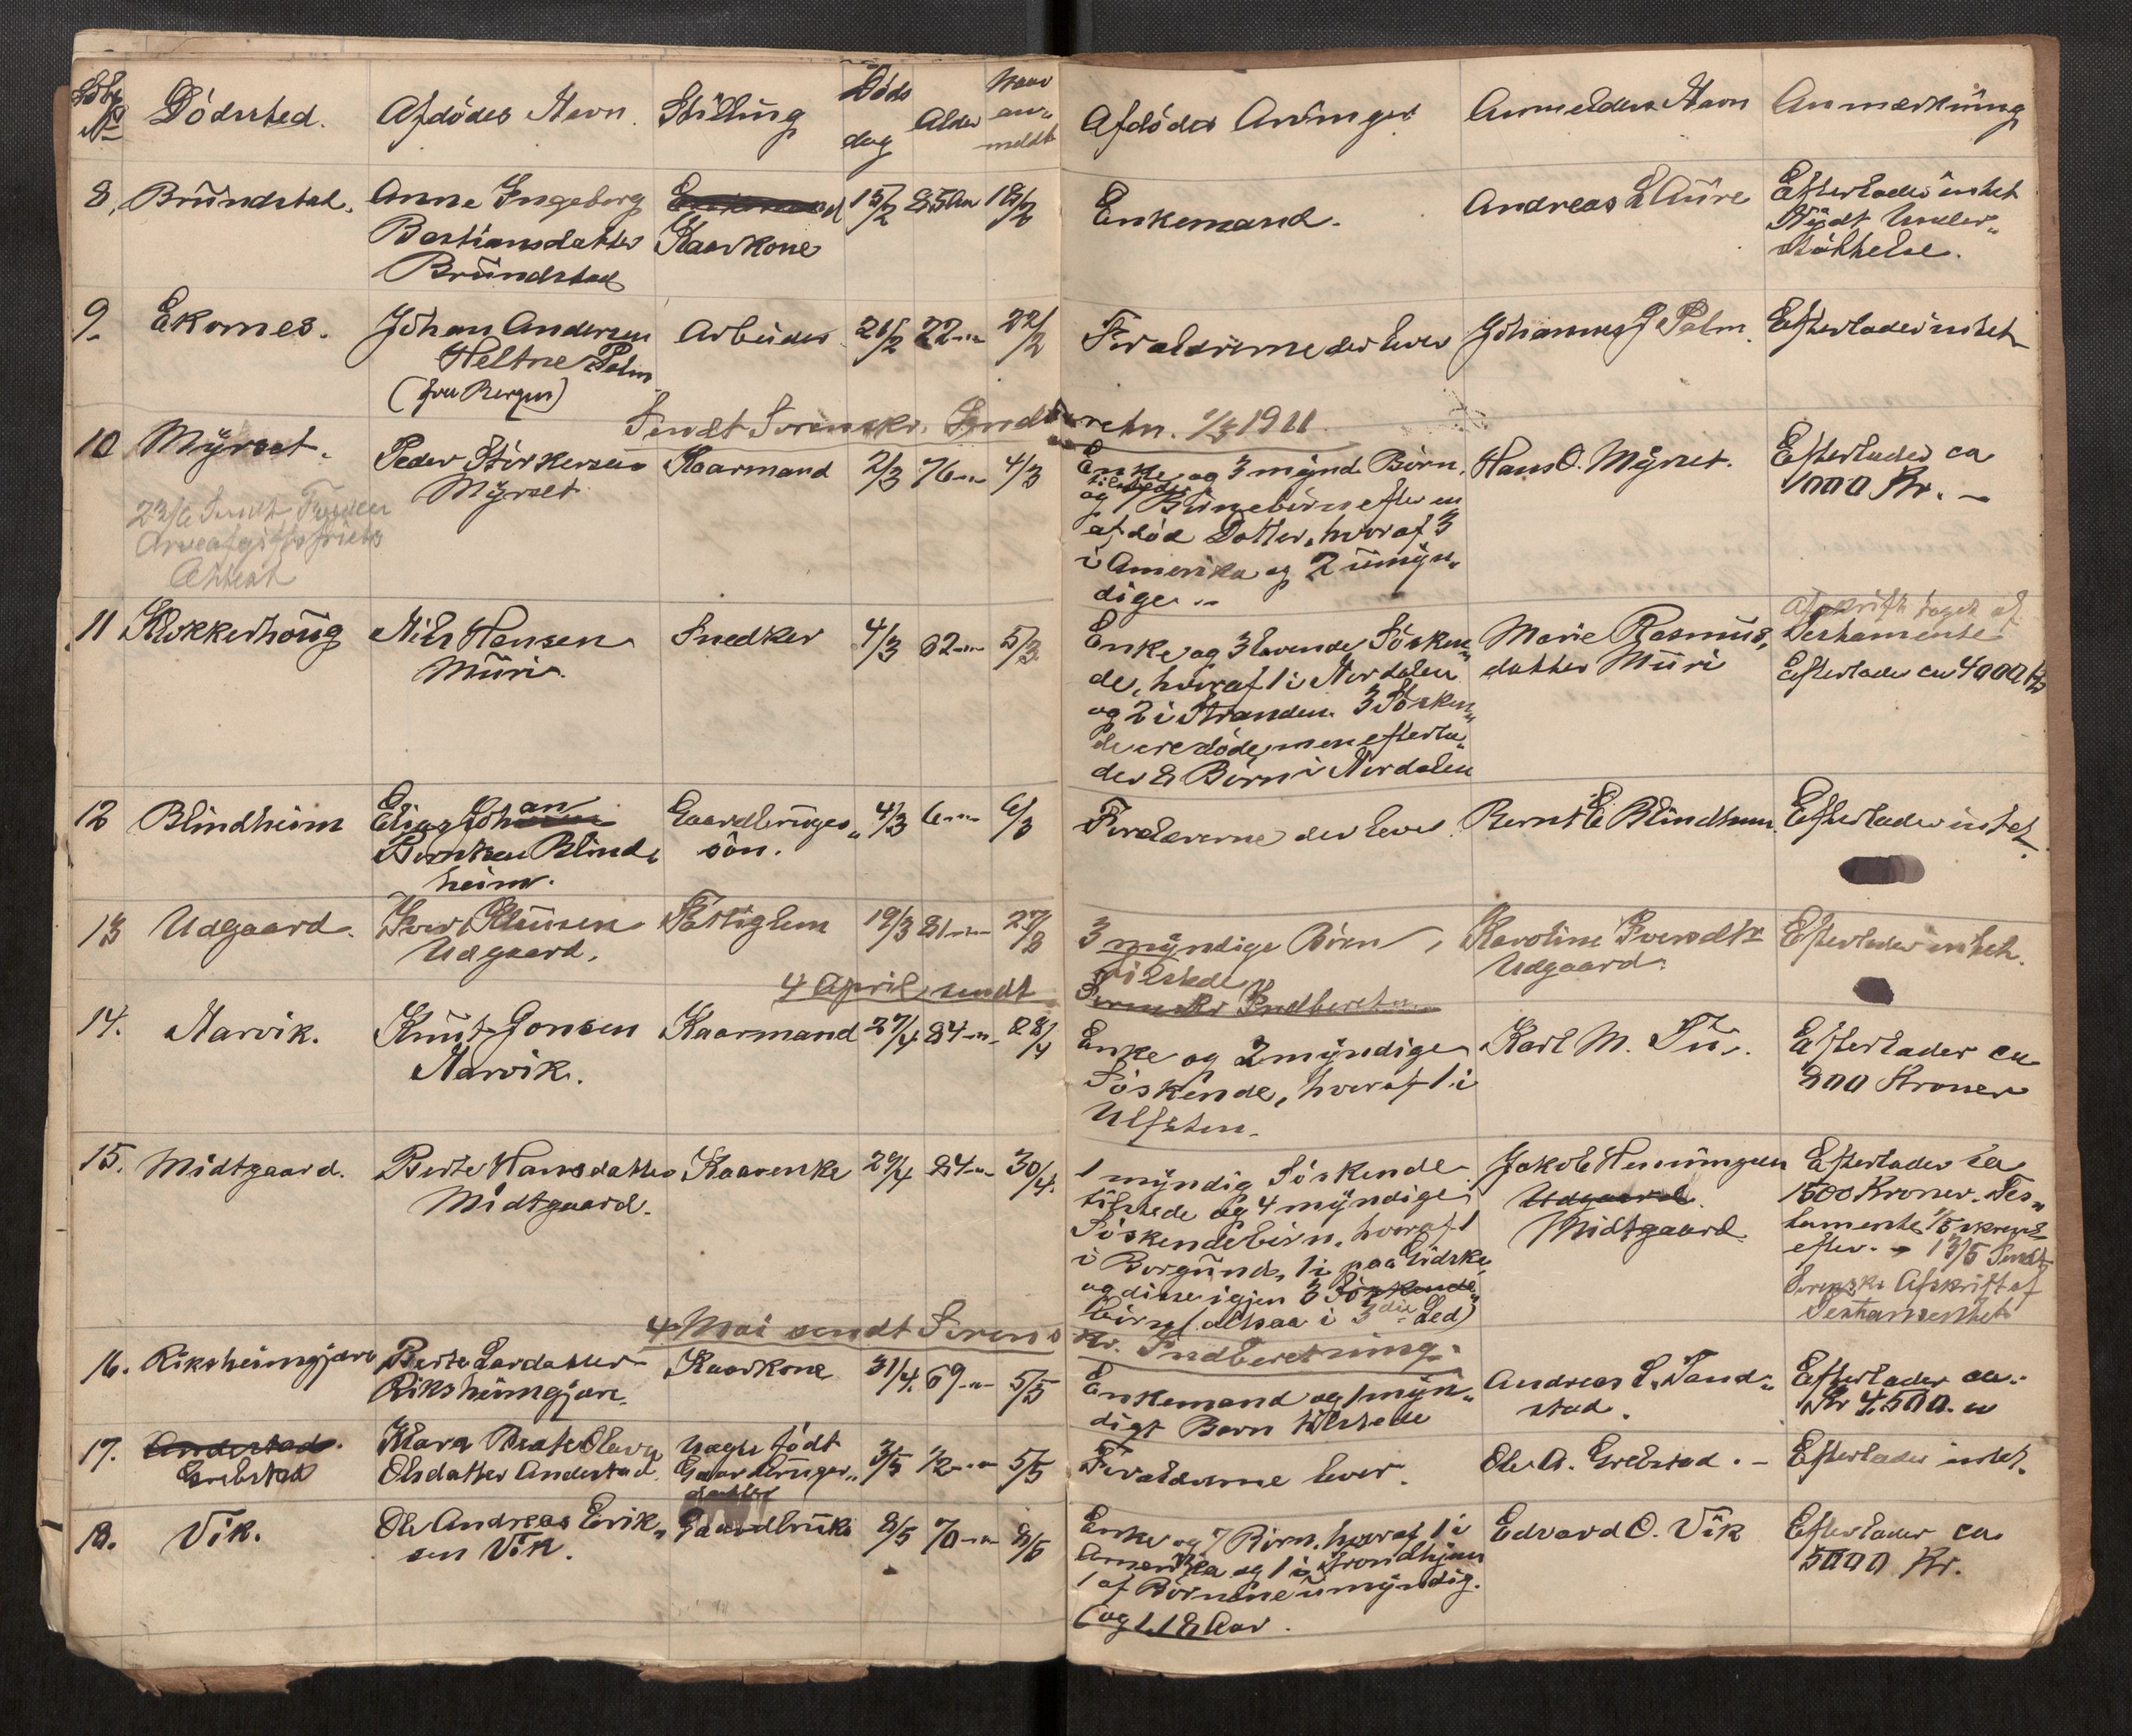 Løbe No
Dödssted.
Afdödes Navn.
Stilling
Döds
dag
Alder
Naar
an-
meldt
Afdödes Arvinger
Anmelders Navn
Anmærkning
8.
Brundstad.
Anne Ingeborg
Bastiansdatter
Brundstad
Kaarkone
15/2
85 Aar
18/2
Enkemand.
Andreas L Aure
Efterlader intet
Nydt Under-
støttelse.
9.
Ekornes.
Johan Andersen
Weltne Palm
(fra Bergen)
Arbeider
21/2
22 -"-
22/2
Forældrene der lever
Johannes J Palm.
Efterlader intet
Sendt Sorenskr. Indberetn. 1/3 1911
10
Myrset.
23/6 Sendt
Arveafgifts
Attest
Peder Störkersen
Myrset
Kaarmand
2/3
76 -"-
4/3
Enke og 3 mynd. Börn,
tilstede
og 7 Börnebörn efter en
afdöd Datter, hvoraf 3
i Amerika og 2 umyn-
dige -
Hans O. Myrset.
Efterlader ca
1000 Kr. -
11
Klokkerhoug
Nils Hansen
Muri.
Snedker
4/3
62 -"-
5/3
Enke og 3 levende Sösken-
de, hvoraf 1 i Nordalen
og 2 i Stranden. 3 Sösken-
de ere döde, men efterla-
der 8 Börn i Nordalen
Marie Rasmus-
datter Muri
Afskrift taget af
Testamente
Efterlader ca 4000 Kr
12
Blindheim
Elias Johan
Berntsen Blind-
heim.
Gaardbruger-
sön.
4/3
6 -"-
6/3
Forældrene der lever.
Bernt E Blindheim.
Efterlader intet.
13
Udgaard.
Iver Klausen
Udgaard.
Fattiglem
19/3
81 -"-
27/3
3 myndige Börn,
tilstede
Karoline Svendtr
Udgaard.
Efterlader intet.
4 April sendt
Sorenskr Indberetn.
14.
Narvik.
Knut Jonsen
Narvik.
Kaarmand
27/4
84 -"-
28/4
Enke og 2 myndige
Söskende, hvoraf 1 i
Ulfsten.
Karl M. Tu.
Efterlader ca
800 Kroner
15.
Midtgaard.
Berte Hansdatter
Midtgaard.
Kaarenke
29/4
84 -"-
30/4.
1 myndig Söskende
tilstede og 4 myndige
Söskendebörn, hvoraf 1
i Borgund, 1 paa Gidske,
og disse igjen 3 Söskende-
börn (altsaa i 3die Led)
Jakob Henningsen
Udgaard.
Midtgaard.
Efterlader ca
1500 Kroner. Tes-
tamente
efter. - 13/5 Sendt
Sorenskr. Afskrift af
Testamentet
4 Mai sendt Sorens-
kr. Indberetning.
16.
Riksheimgjære
Berte Larsdatter
Riksheimgjære.
Kaarkone
31/4.
69 -"-
5/5
Enkemand og 1 myn-
digt Barn tilstede
Andreas L. Tand-
stad.
Efterlader ca.
Kr 4,500.
17.
Andestad.
Grebstad
Klara Beate Olava
Olsdatter Andestad.
Uægte födt
Gaardbruger-
datter
3/5
1/2 -"-
5/5
Forældrene lever.
Ole A. Grebstad. -
Efterlader intet.
18.
Vik.
Ole Andreas Erik-
sen Vik.
Gaardbruker
8/5
70 -"-
8/5
Enke og 7 Börn, hvoraf 1 i
Amerika og 1 i Trondhjem
1 af Börnene umyndig.
(og 1, 18 Aar.
Edvard O. Vik
Efterlader ca.
5000 Kr.